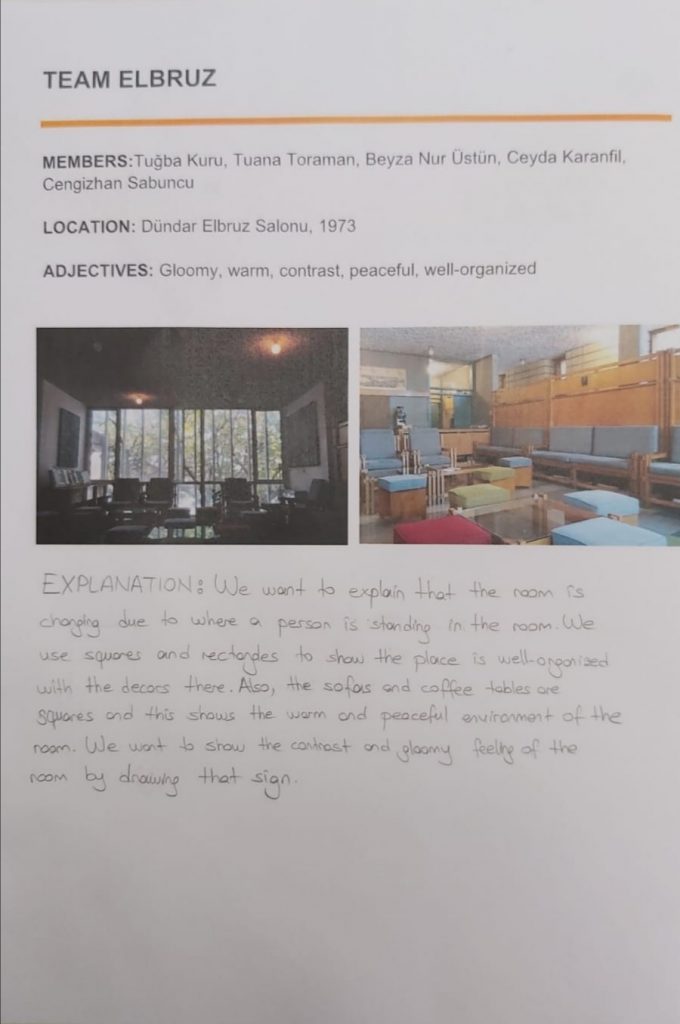 TEAM ELBRUZ
MEMBERS:Tuğba Kuru, Tuana Toraman, Beyza Nur Üstün, Ceyda Karanfil,
Cengizhan Sabuncu
LOCATION: Dündar Elbruz Salonu, 1973
ADJECTIVES: Gloomy, warm, contrast, peaceful, well-organized
EXPLANATION: We want to explain that the room is
changing due to where a person is standing in the room. We
use squares and rectangles to show the place is well-organized
with the decors there. Also, the sofas and coffee tables are
squares and this shows the warm and peaceful environment of the
room. We want to show the contrast and gloomy feeling of the
room by drawing that sign.